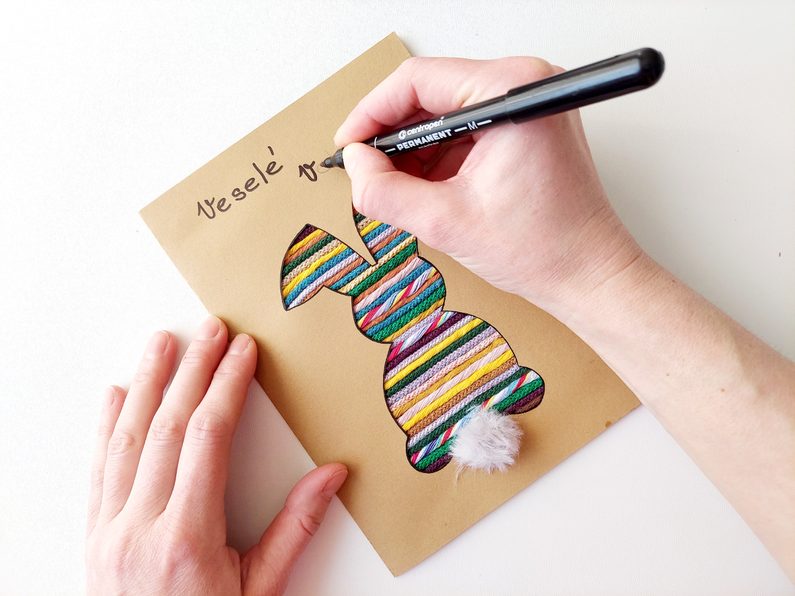 Veselé v
centropen
PERMANENT M